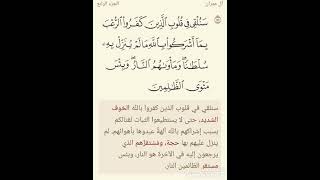 آل عمران
الجزء الرابع
سَنُلْقِي فِي قُلُوبِ الَّذِينَ كَفَرُوا الرُّعْبَ
بِمَا أَشْرَكُوا بِاللَّهِ مَا لَمْ يُنَزِّلْ بِهِ
سُلْطَانًا وَمَأْوَاهُمُ النَّارُ وَبِئْسَ
مَثْوَى الظَّالِمِينَ
سنلقي في قلوب الذين كفروا بالله الخوف
الشديد، حتى لا يستطيعوا الثبات لقتالكم
بسبب إشراكهم بالله آلهةً عبدوها بأهوائهم، لم
ينزل عليهم بها حجة، ومستقرُّهم الذي
يرجعون إليه في الآخرة هو النار، وبئس
مستقر الظالمين النار.